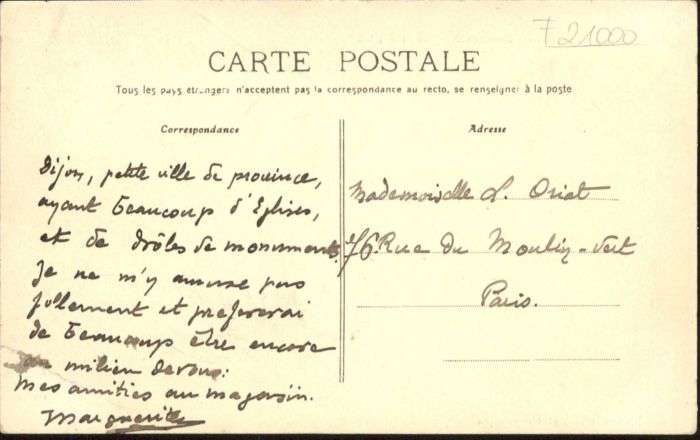 721000
CARTE POSTALE
Tous les pays étrangers n'acceptent pas la correspondance au recto, se renseigner à la poste
Correspondance
Dijon, petite ville de province,
ayant beaucoup d'Eglises,
et de drôles de monuments
je ne m'y amuse pas
follement et prefererai
de beaucoup être encore
au milieu de vous.
Mes amitiés au magasin.
Marguerite
Adresse
Mademoiselle L. Oriol
76 Rue du Moulin-Vert
Paris.